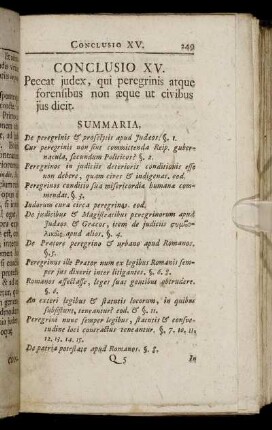 CONCLUSIO XV. 249
CONCLUSIO XV.
Peccat judex, qui peregrinis atque
forensibus non æque ut civibus
jus dicit.
SUMMARIA.
De peregrinis & proselytis apud Judæos. §. 1.
Cur peregrinis non sint committenda Reip. guber-
nacula, secundum Politicos? §. 2.
Peregrinus in judiciis deterioris conditionis esse
non debere, quam cives & indigenas, eod.
Peregrinos conditio sua misericordia humana com-
mendat. §. 3.
Judæorum cura circa peregrinos. eod.
De judicibus & Magistratibus peregrinorum apud
Judæos & Græcos, item de judiciis
apud alios, §. 4.
De Prætore peregrino & urbano apud Romanos,
§. 5.
Peregrinus ille Prætor num ex legibus Romanis sem-
per jus dixerit inter litigantes. §. 6. 8.
Romanos affectasse, leges suas gentibus obtrudere.
§. 6.
An exteri legibus & statutis locorum, in quibus
subsistunt, teneantur? eod. & §. 11.
Peregrini nunc semper legibus, statutis & consue-
tudine loci contractus teneantur. §. 7. 10. 11.
12. 13. 14. 15.
De patria potestate apud Romanos. §. 8.
Q 5 In